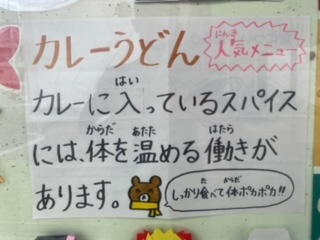 カレーうどん
にんき
人気メニュー
はい
カレーに入っているスパイス
からだ あたた はたら
には、体を温める働きが
あります。
た からだ
しっかり食べて体ポカポカ!!